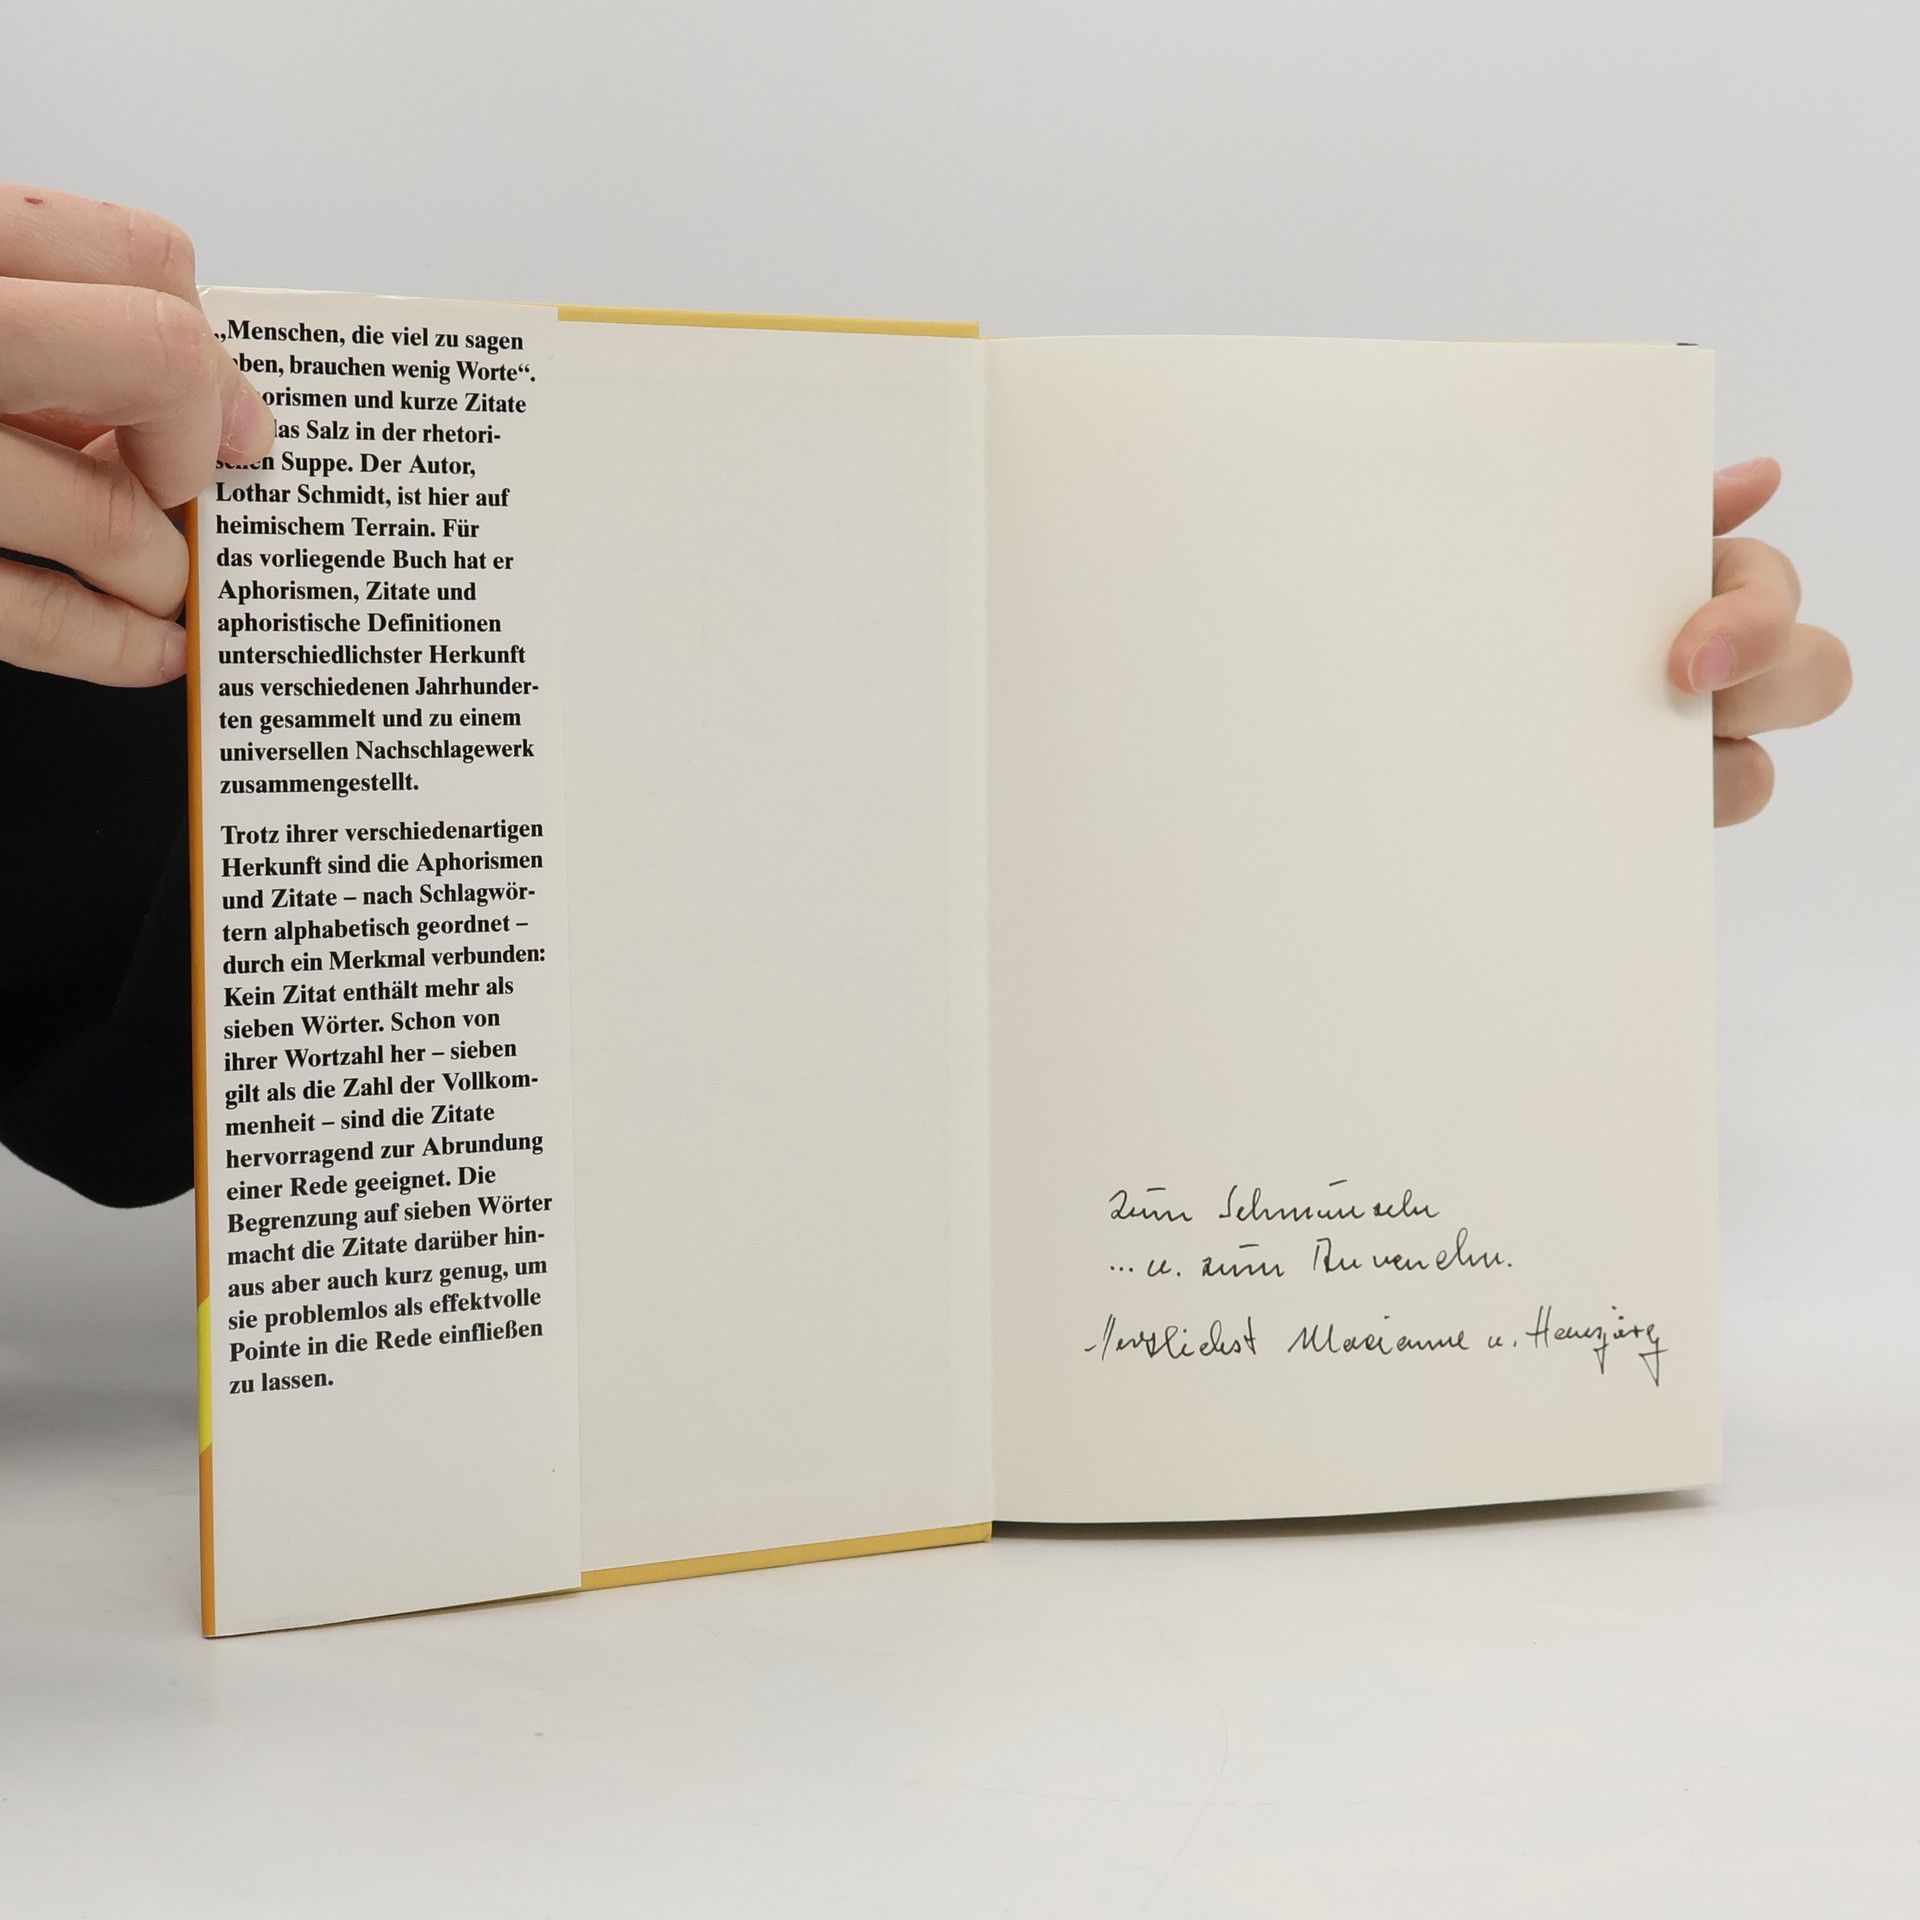 „Menschen, die viel zu sagen
ben, brauchen wenig Worte“.
orismen und kurze Zitate
das Salz in der rhetori-
schen Suppe. Der Autor,
Lothar Schmidt, ist hier auf
heimischem Terrain. Für
das vorliegende Buch hat er
Aphorismen, Zitate und
aphoristische Definitionen
unterschiedlichster Herkunft
aus verschiedenen Jahrhunder-
ten gesammelt und zu einem
universellen Nachschlagewerk
zusammengestellt.
Trotz ihrer verschiedenartigen
Herkunft sind die Aphorismen
und Zitate – nach Schlagwör-
tern alphabetisch geordnet –
durch ein Merkmal verbunden:
Kein Zitat enthält mehr als
sieben Wörter. Schon von
ihrer Wortzahl her – sieben
gilt als die Zahl der Vollkom-
menheit – sind die Zitate
hervorragend zur Abrundung
einer Rede geeignet. Die
Begrenzung auf sieben Wörter
macht die Zitate darüber hin-
aus aber auch kurz genug, um
sie problemlos als effektvolle
Pointe in die Rede einfließen
zu lassen.
Zum Schmunzeln
... u. zum Anwenden.
Herzlichst Marianne u. Hansjörg